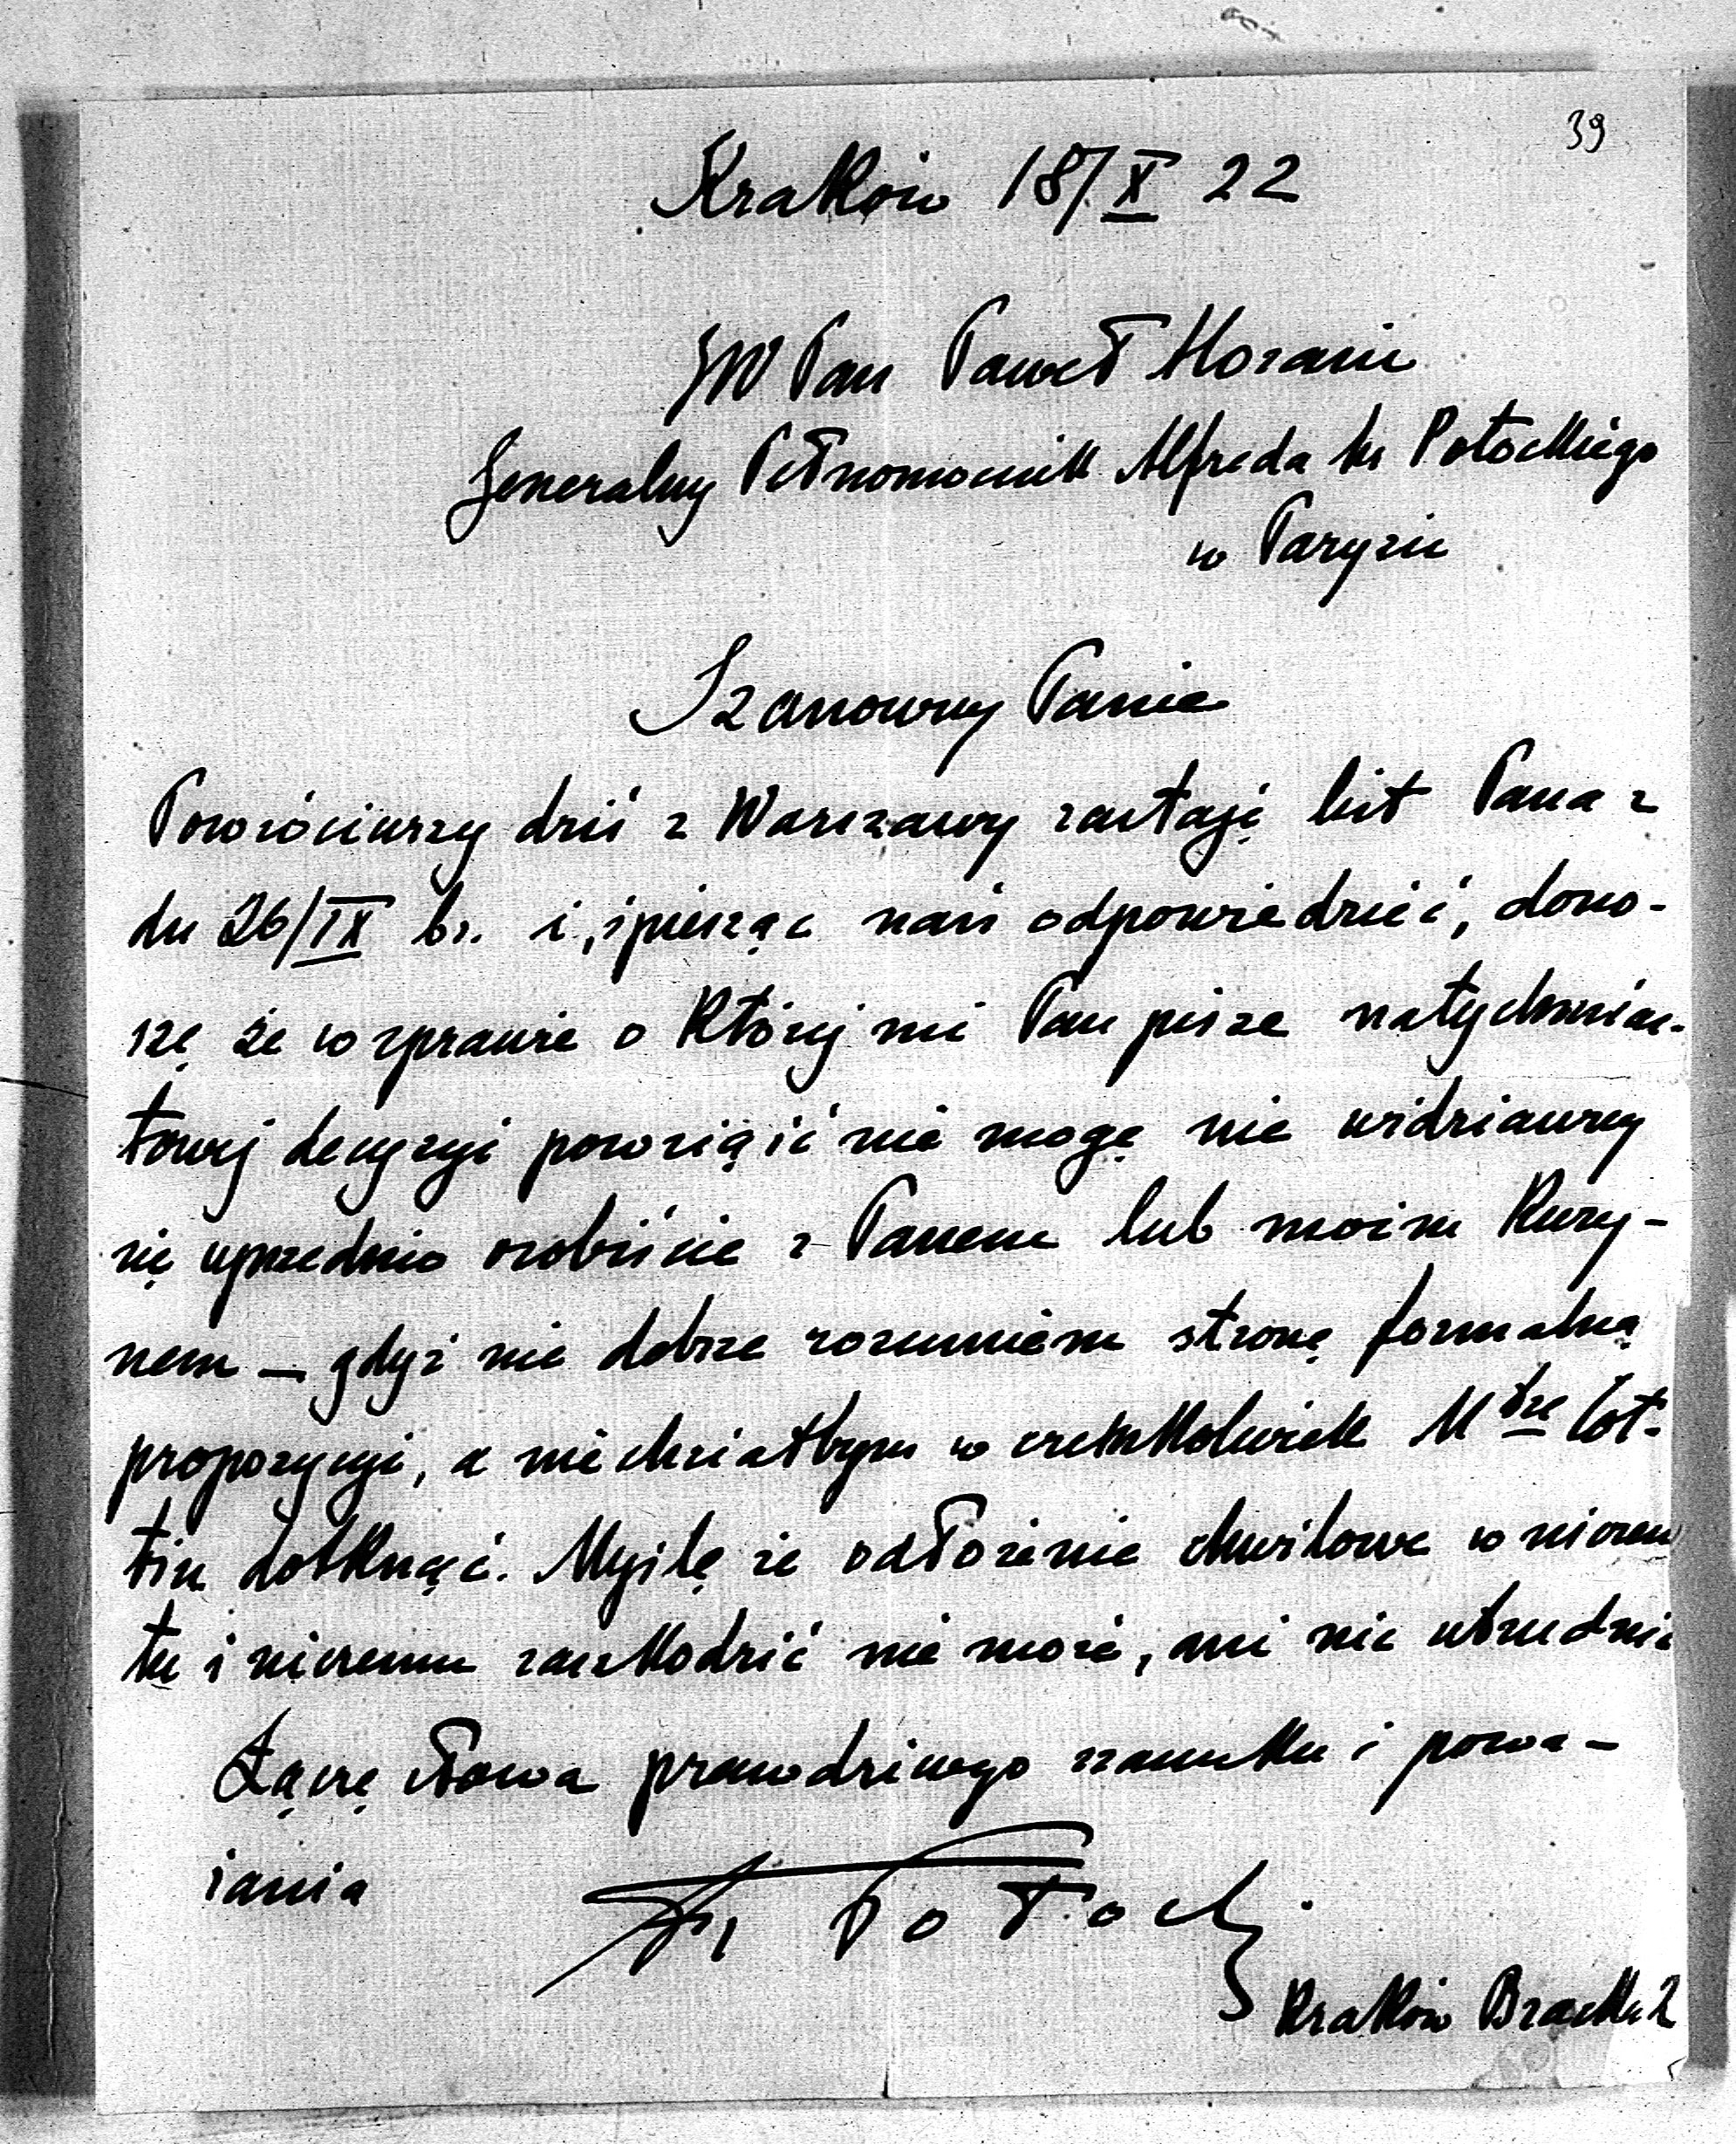 39
Kraków 18/X 22
JW Pan Paweł Morani
Generalny Pełnomocnik Alfreda hr Potockiego
w Paryżu
Szanowny Panie
Powróciwszy dziś z Warszawy zastaję list Pana z
dn 26/IX br. i, śpiesząc nań odpowiedzieć, dono-
szę że w sprawie o której mi Pan pisze natychmias-
towej decyzyi powziąść nie mogę nie widziawszy
się uprzednio osobiście z Panem lub moim Kuzy-
nem – gdyż nie dobrze rozumiem stronę formalną
propozycyi, a nie chciałbym w czemkolwiek M tre Cot-
tin dotknąć. Myślę że odłożenie chwilowe w niczem
tu i niczemu zaszkodzić nie może, ani nic utrudnić
Łączę słowa prawdziwego szacunku i powa-
żania
Fr Potocki
Kraków Bracka 2